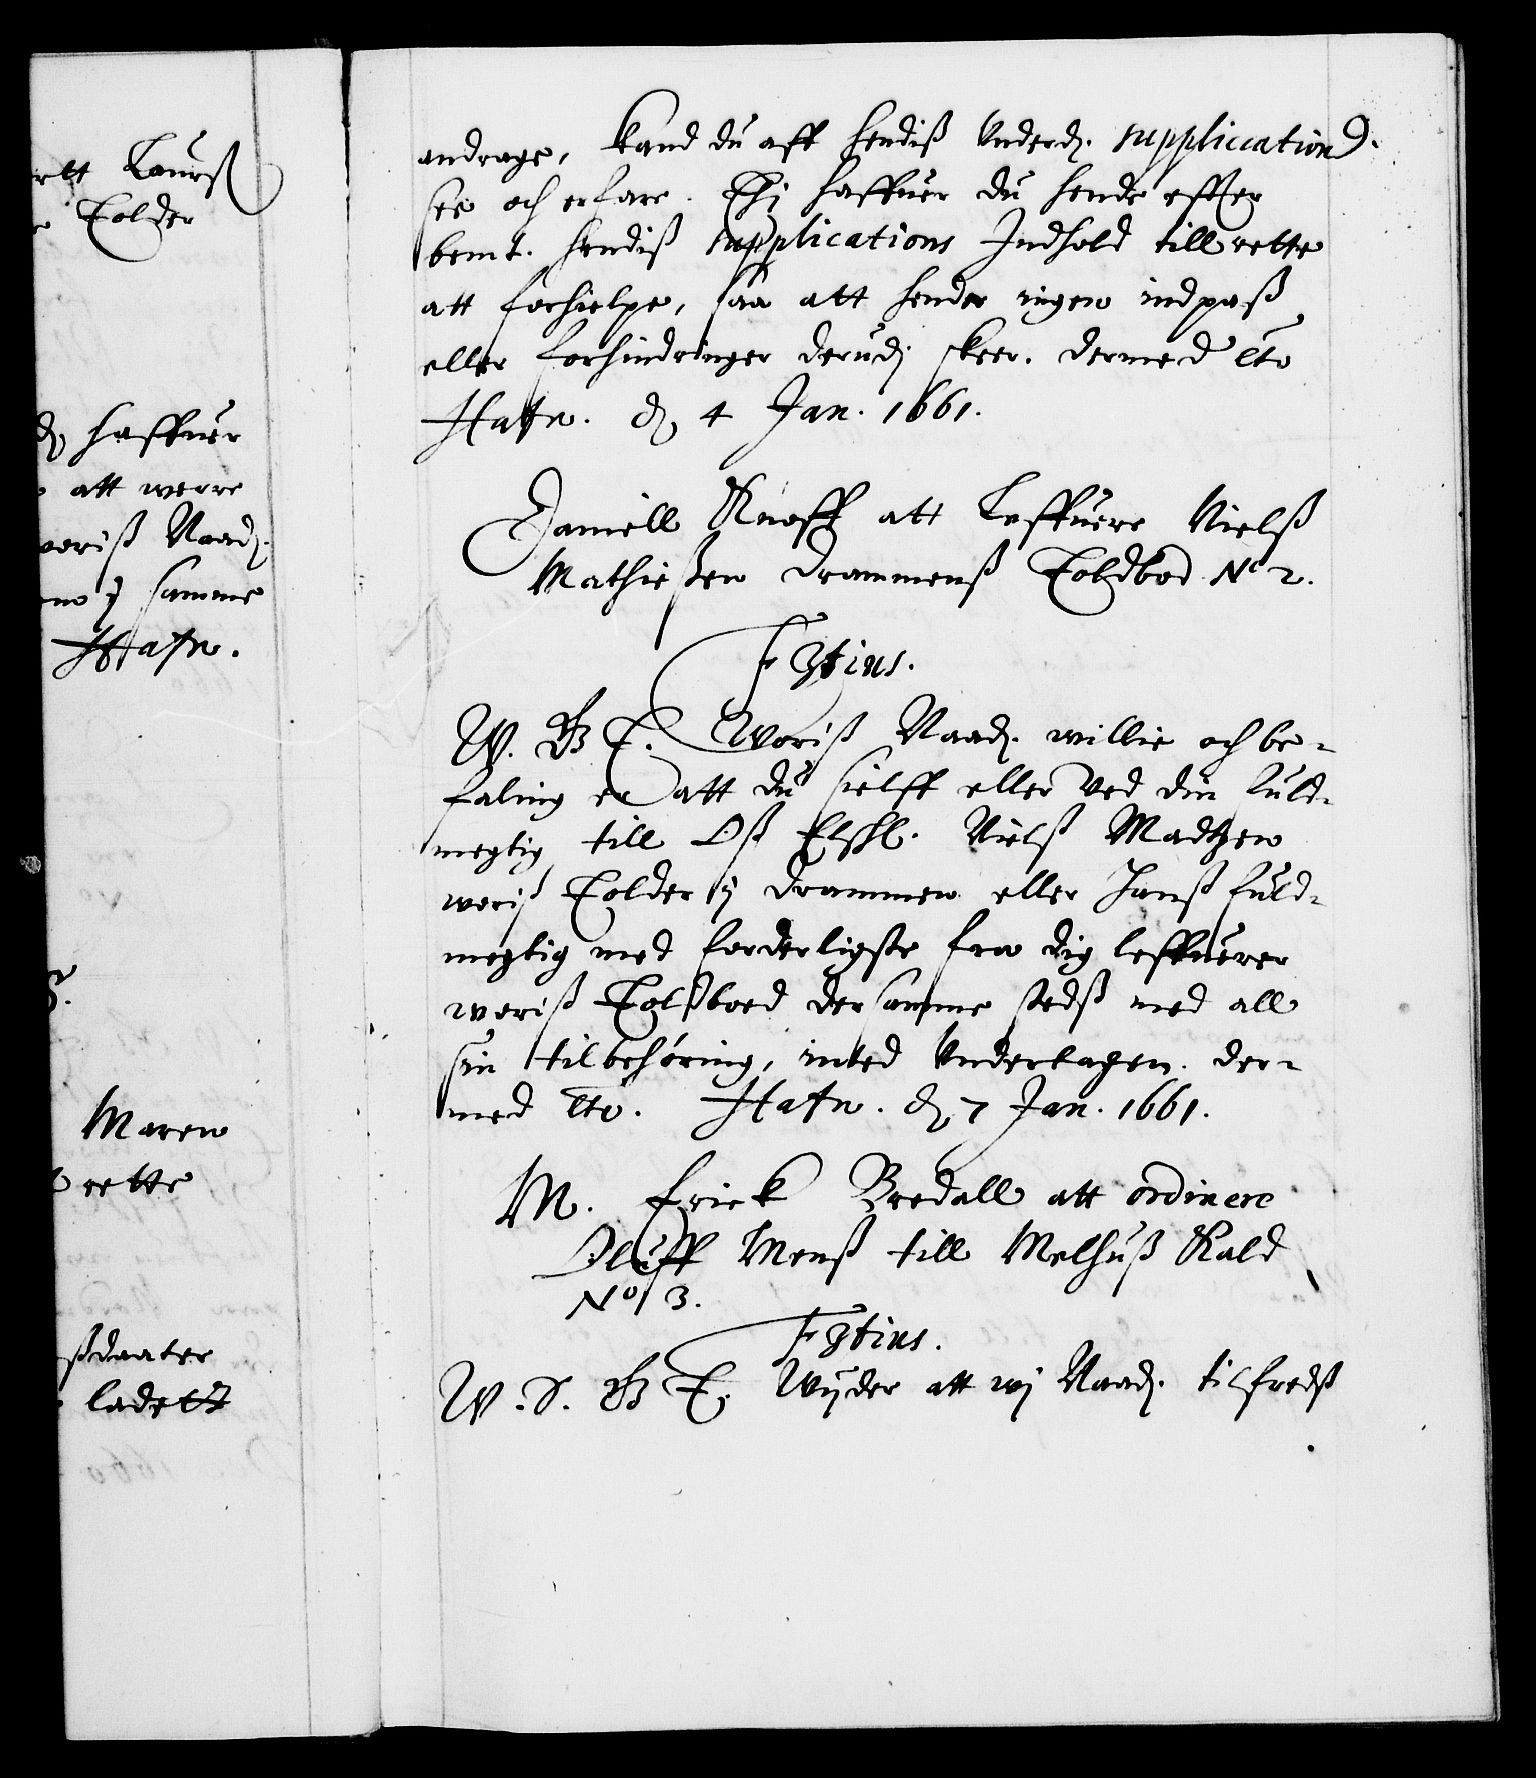 rtt Laurß
Tolder
haffuer
att werre
woriß Naad.
samme
Hafn.
Maren
rette
ßdaater
ladett
andrage, kand du aff hendiß Underd. suppliccation
see och erfare. Thj haffuer du hende effter
bemt. hendiß supplications Indhold till rette
att forhielpe, saa att hender ingen indpaß
eller forhindringer derudj skeer. dermed etc
Hafn. d. 4 Jan. 1661.
Daniell Knoff att Leffuere Nielß
Mathießen Drammenß Toldbod No 2.
F 3tius.
W. G T. Woriß Naad. willie och be-
faling er att du sielff eller ved din fuld-
megtig till Oß Elskl. Nielß Madtzen
woriß Tolder ij Drammen eller hanß fuld-
megtig med forderligste fra dig leffuerer
woriß Toldboed der samme stedß med all
sin tilbehøring, inted Undertagen. der-
med etc. Hafn. d. 7 Jan. 1661.
M. Erick Bredall att ordinere
Oluff Menß till Melhuß Kald
No 3.
F 3tius.
W. S. G T. Wijder att wj Naad. tilfredß